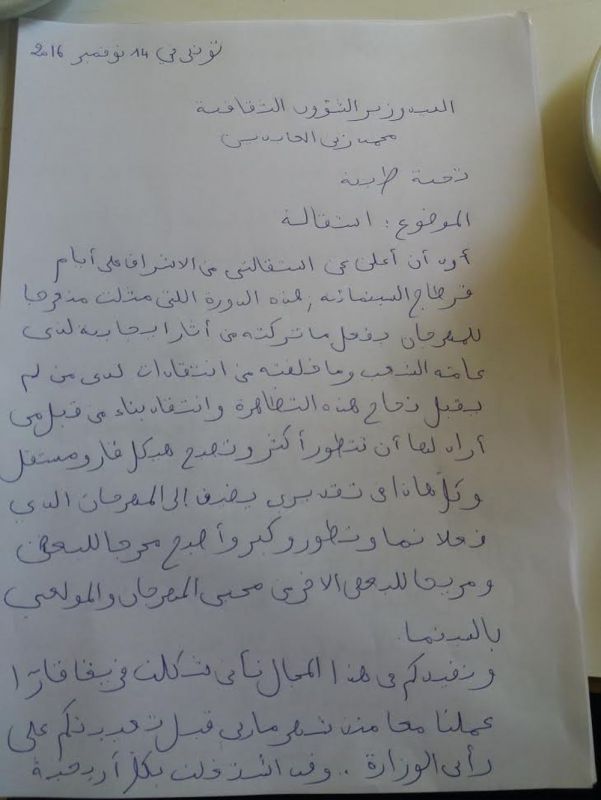 تونس في 14 نوفمبر 2016
السيد وزير الشؤون الثقافية
محمد زين العابدين
تحية طيبة
الموضوع : استقالة
أود أن أعلن عن استقالتي من الاشراف على أيام
قرطاج السينمائية, هذه الدورة التي مثلت منعرجا
للمهرجان بفعل ما تركته من آثار ايجابية لدى
عامة الشعب وما خلفته من انتقادات لدى من لم
يقبل نجاح هذه التظاهرة وانتقاد بناء من قبل من
أراد لها أن تتطور أكثر وتصبح هيكل قار ومستقل
وكل هاذا في تقديري يضيف إلى المهرجان الذي
فعلا نما وتطور وكبر وأصبح محرجا للبعض
ومربحا للبعض الآخر من محبي المهرجان والمولعين
بالسينما.
ونفيدكم في هذا المجال بأني شكلت فريقا قارّا
عملنا معا منذ شهر مارس قبل تعيينكم على
رأس الوزارة .. وقد اشتغلت بكل أريحية